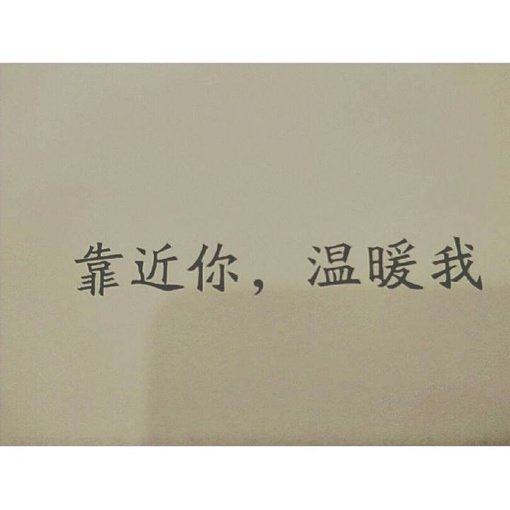 靠近你，温暖我